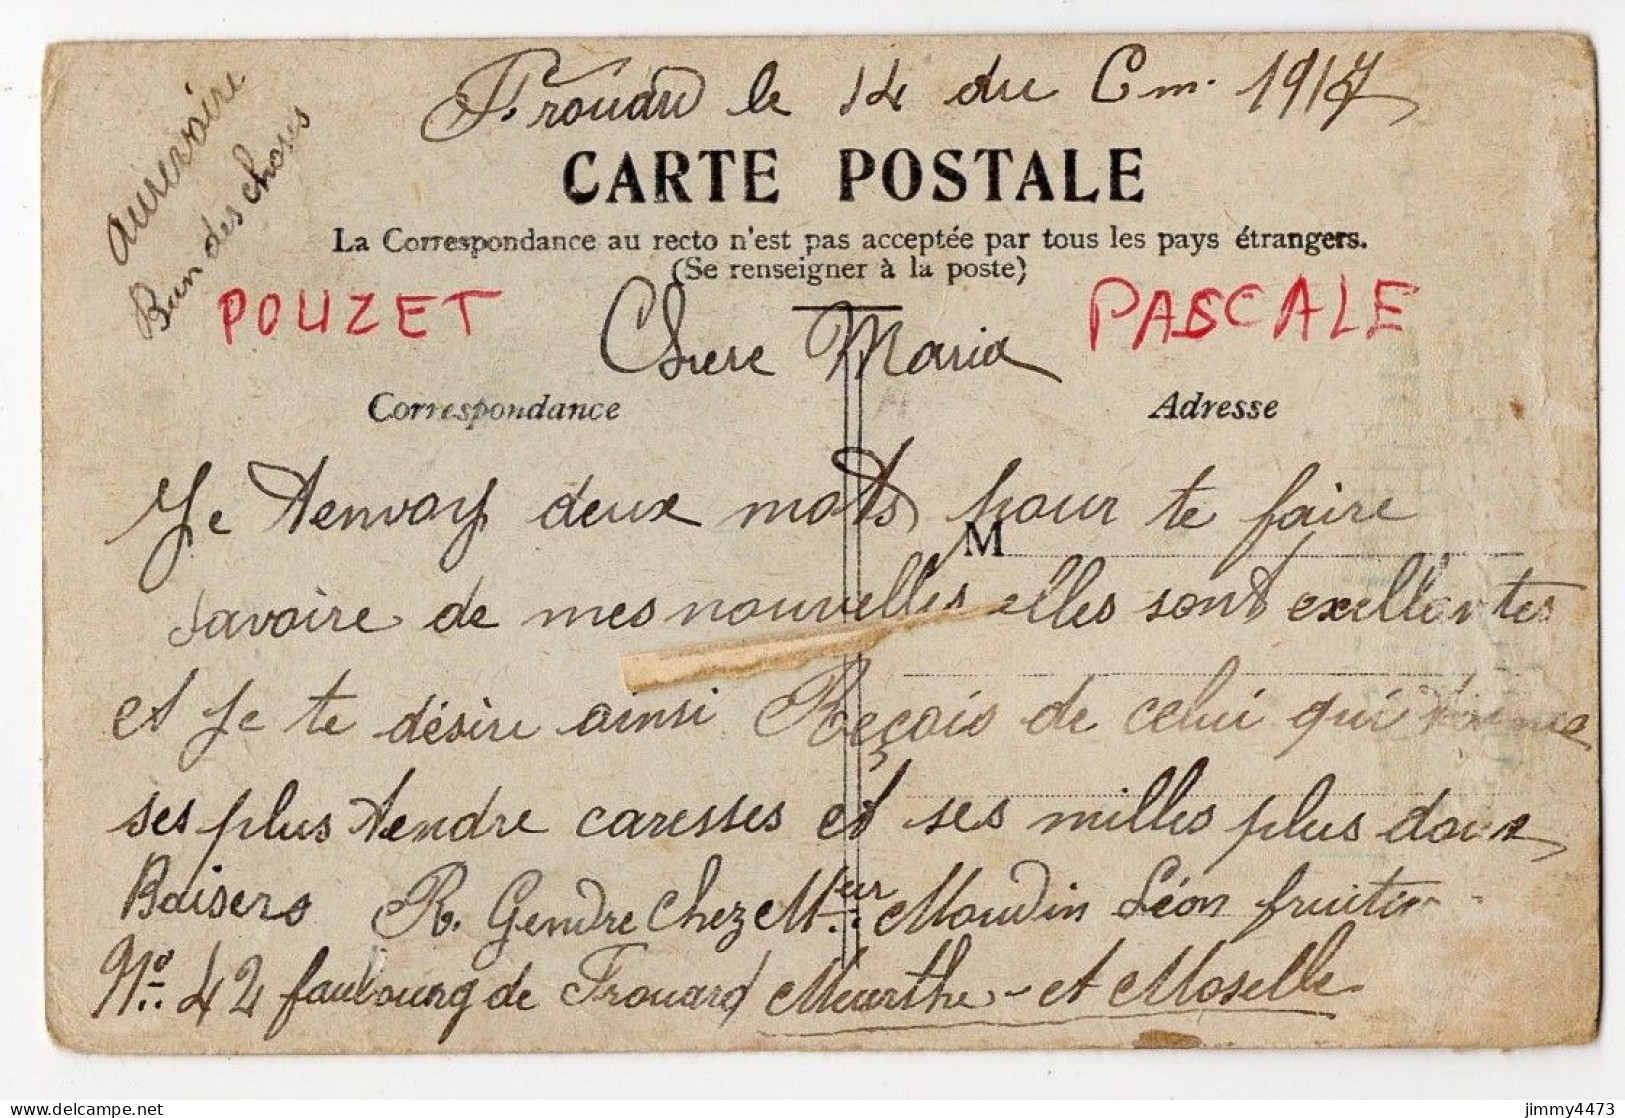 Frouard le 14 du Cm. 1917
aurevoire
Bun des choses
CARTE POSTALE
La Correspondance au recto n'est pas acceptée par tous les pays étrangers.
(Se renseigner à la poste)
POUZET
PASCALE
Chere Maria
Correspondance
Adresse
M
Je t'envoy deux mots pour te faire
savoire de mes nouvelles elles sont exellantes
et je te désire ainsi Reçois de celui qui
ses plus tendre caresses et ses milles plus doux
Baisers R. Gendre chez Mr. Moudin Léon fruitier
No. 42 faubourg de Frouard Meurthe-et Moselle
jimmy4473